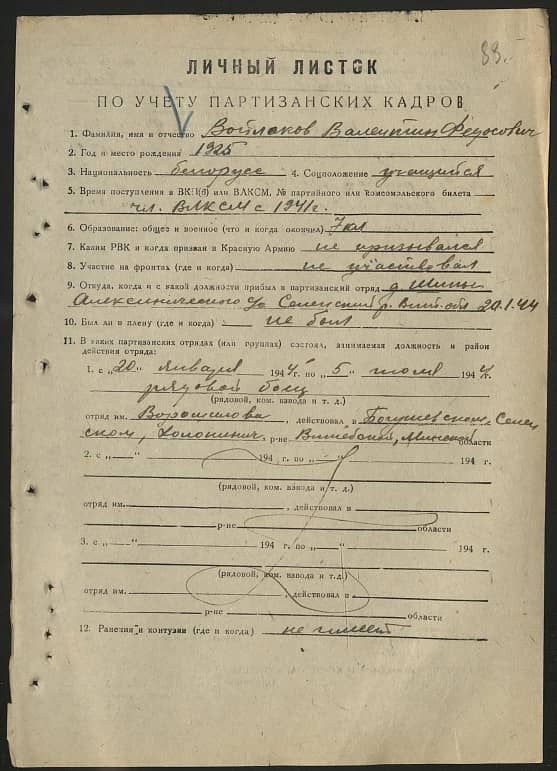 83.
ЛИЧНЫЙ ЛИСТОК
ПО УЧЕТУ ПАРТИЗАНСКИХ КАДРОВ
1. Фамилия, имя и отчество Войлоков Валентин Федосович
2. Год и место рождения 1925
3. Национальность белорусс 4. Соцположение учащийся
5. Время поступления в ВКП(б) или ВЛКСМ, № партийного или комсомольского билета
чл. ВЛКСМ с 1941 г.
6. Образование: общее и военное (что и когда окончил) 7 кл
7. Каким РВК и когда призван в Красную Армию не призывался
8. Участие на фронтах (где и когда) не участвовал
9. Откуда, когда и с какой должности прибыл в партизанский отряд д.
Алексиничского с/с Сенненский р. Вит. обл 20.1.44
10. Был ли в плену (где и когда) не был
11. В каких партизанских отрядах (или группах) состоял, занимаемая должность и район
действия отряда:
1. с „20" января 1944 г. по „5" июля 1944 г.
рядовой боец
(рядовой, ком. взвода и т. д.)
отряд им. Ворошилова, действовал в Богушевском, Сенен
ском, Холопенич. р-не Витебской, Минской области
2. с „—" 194 г. по „—" 194 г.
(рядовой, ком. взвода и т. д.)
отряд им. , действовал в
р-не области
3. с „—" 194 г. по „—" 194 г.
(рядовой, ком. взвода и т.д.)
отряд им. , действовал в
р-не области
12. Ранения и контузии (где и когда) не имеет